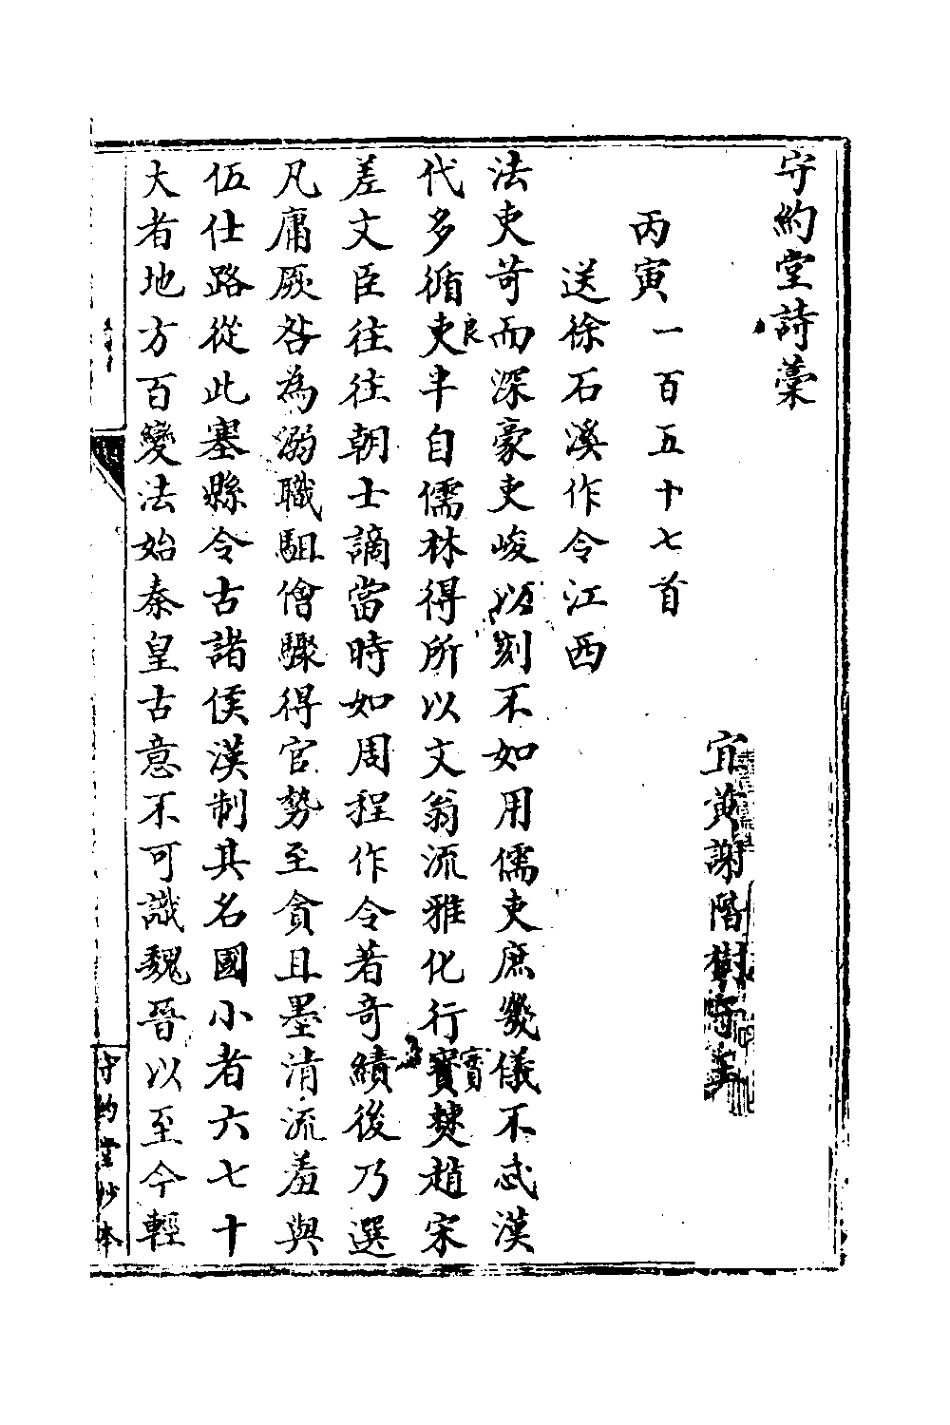 守約堂詩藁
宜黃謝階樹
丙寅一百五十七首
送徐石溪作令江西
法吏苛而深豪吏峻以刻不如用儒吏庶幾儀不忒漢
代多循吏良半自儒林得所以文翁流雅化行賨僰趙宋
差文臣往往朝士謫當時如周程作令著奇績後乃選
凡庸厥咎為溺職駔儈驟得官勢至貪且墨清流羞與
伍仕路從此塞縣令古諸侯漢制其名國小者六七十
大者地方百變法始秦皇古意不可識魏晉以至今輕
守約堂抄本